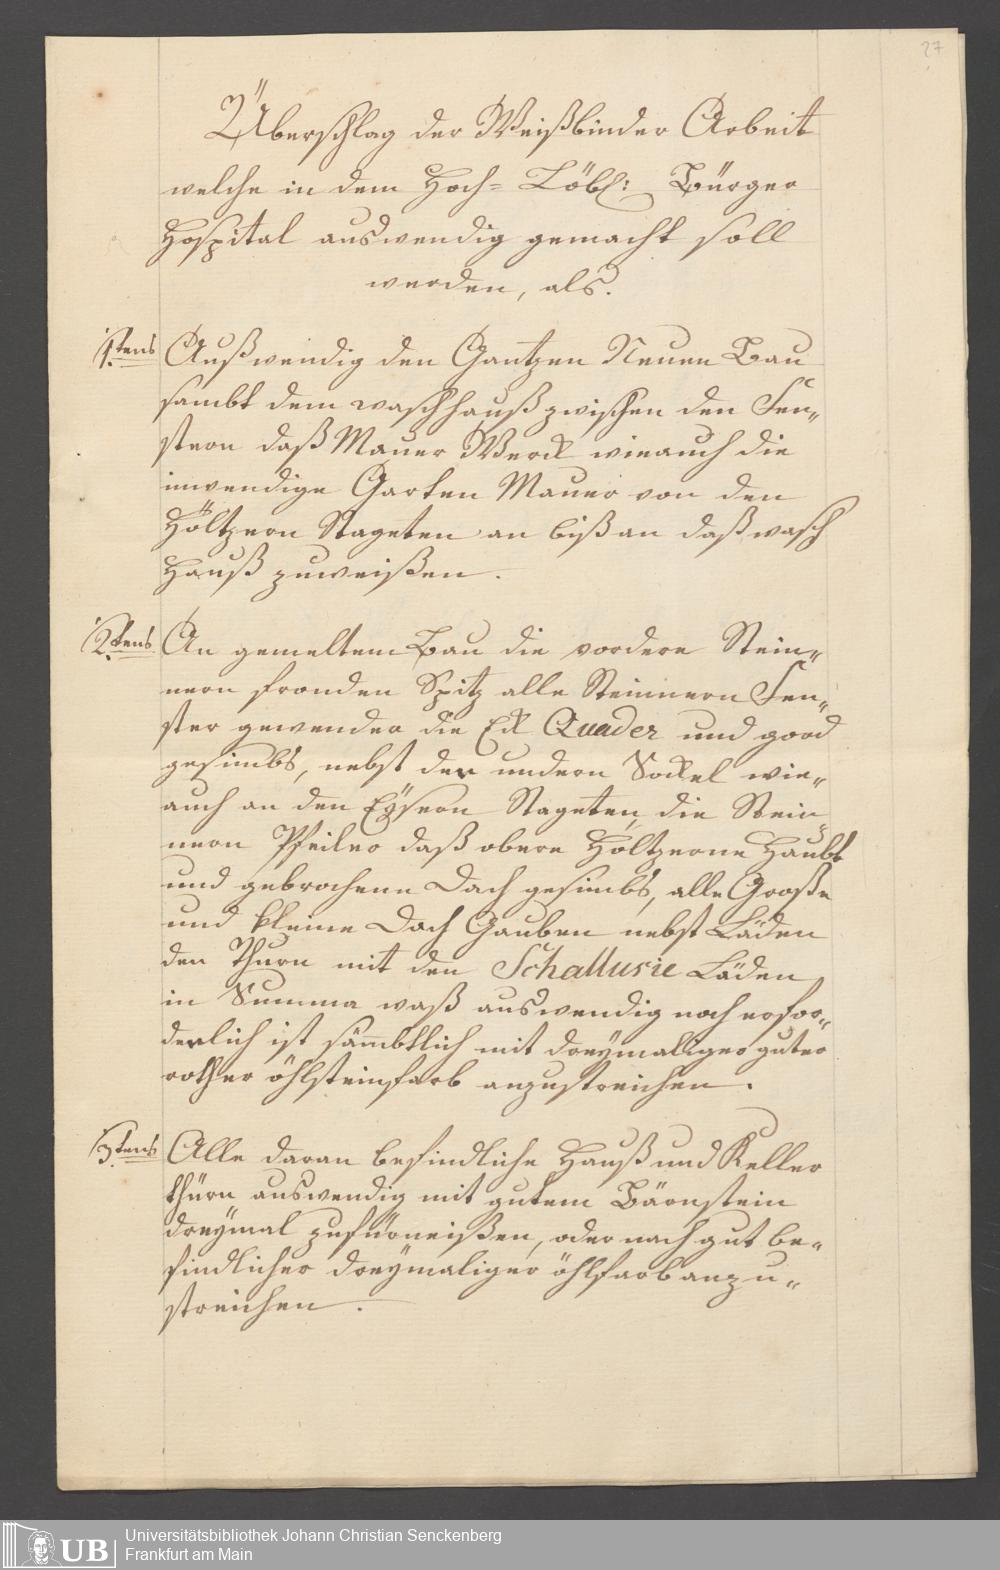 27
Überschlag der Weißbinder Arbeit
welche in dem Hoch- Löbl: Bürger
Hospital auswendig gemacht soll
werden, als.
1.tens Außwendig den Gantzen Neuen Bau
sambt dem waschhauß zwischen den Fen-
stern daß Mauer Werck wie auch die
inwendige Garten Mauer von den
Höltzern Stageten an biß an daß wasch
Hauß zuweißen.
2.tens An gemeltem Bau die vordere Stein-
nern fronden Spitz alle Steinnern Fen-
ster gewender die Eck Quader und gord
gesimbs, nebst der undern Sockel wie-
auch an den Eÿsern Stageten, die Stein
nern Pfeiler daß obere Höltzerne Haubt
und gebrochene Dach gesimbs, alle Große
und kleine Dach Gauben nebst Läden
den Thurn mit den Schallusie Läden
in Summa waß auswendig noch erfor-
derlich ist sämbtlich mit dreÿmaliger guter
rother öhlsteinfarb anzustreichen.
3.tens Alle daran befindliche Hauß und Keller
thürn auswendig mit gutem Bärnstein
dreÿmal zufürneißen, oder nach gut be-
findlicher dreÿmaliger öhlfarb anzu-
streichen.
UB
Universitätsbibliothek Johann Christian Senckenberg
Frankfurt am Main